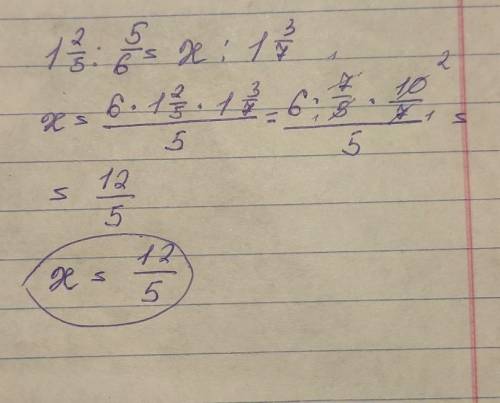 1 2/5 : 5/6 = x : 1 3/7
x = (6 · 1 2/5 · 1 3/7)/5 = (6 · 7/5 · 10/7)/5 = 2
= 12/5
x = 12/5